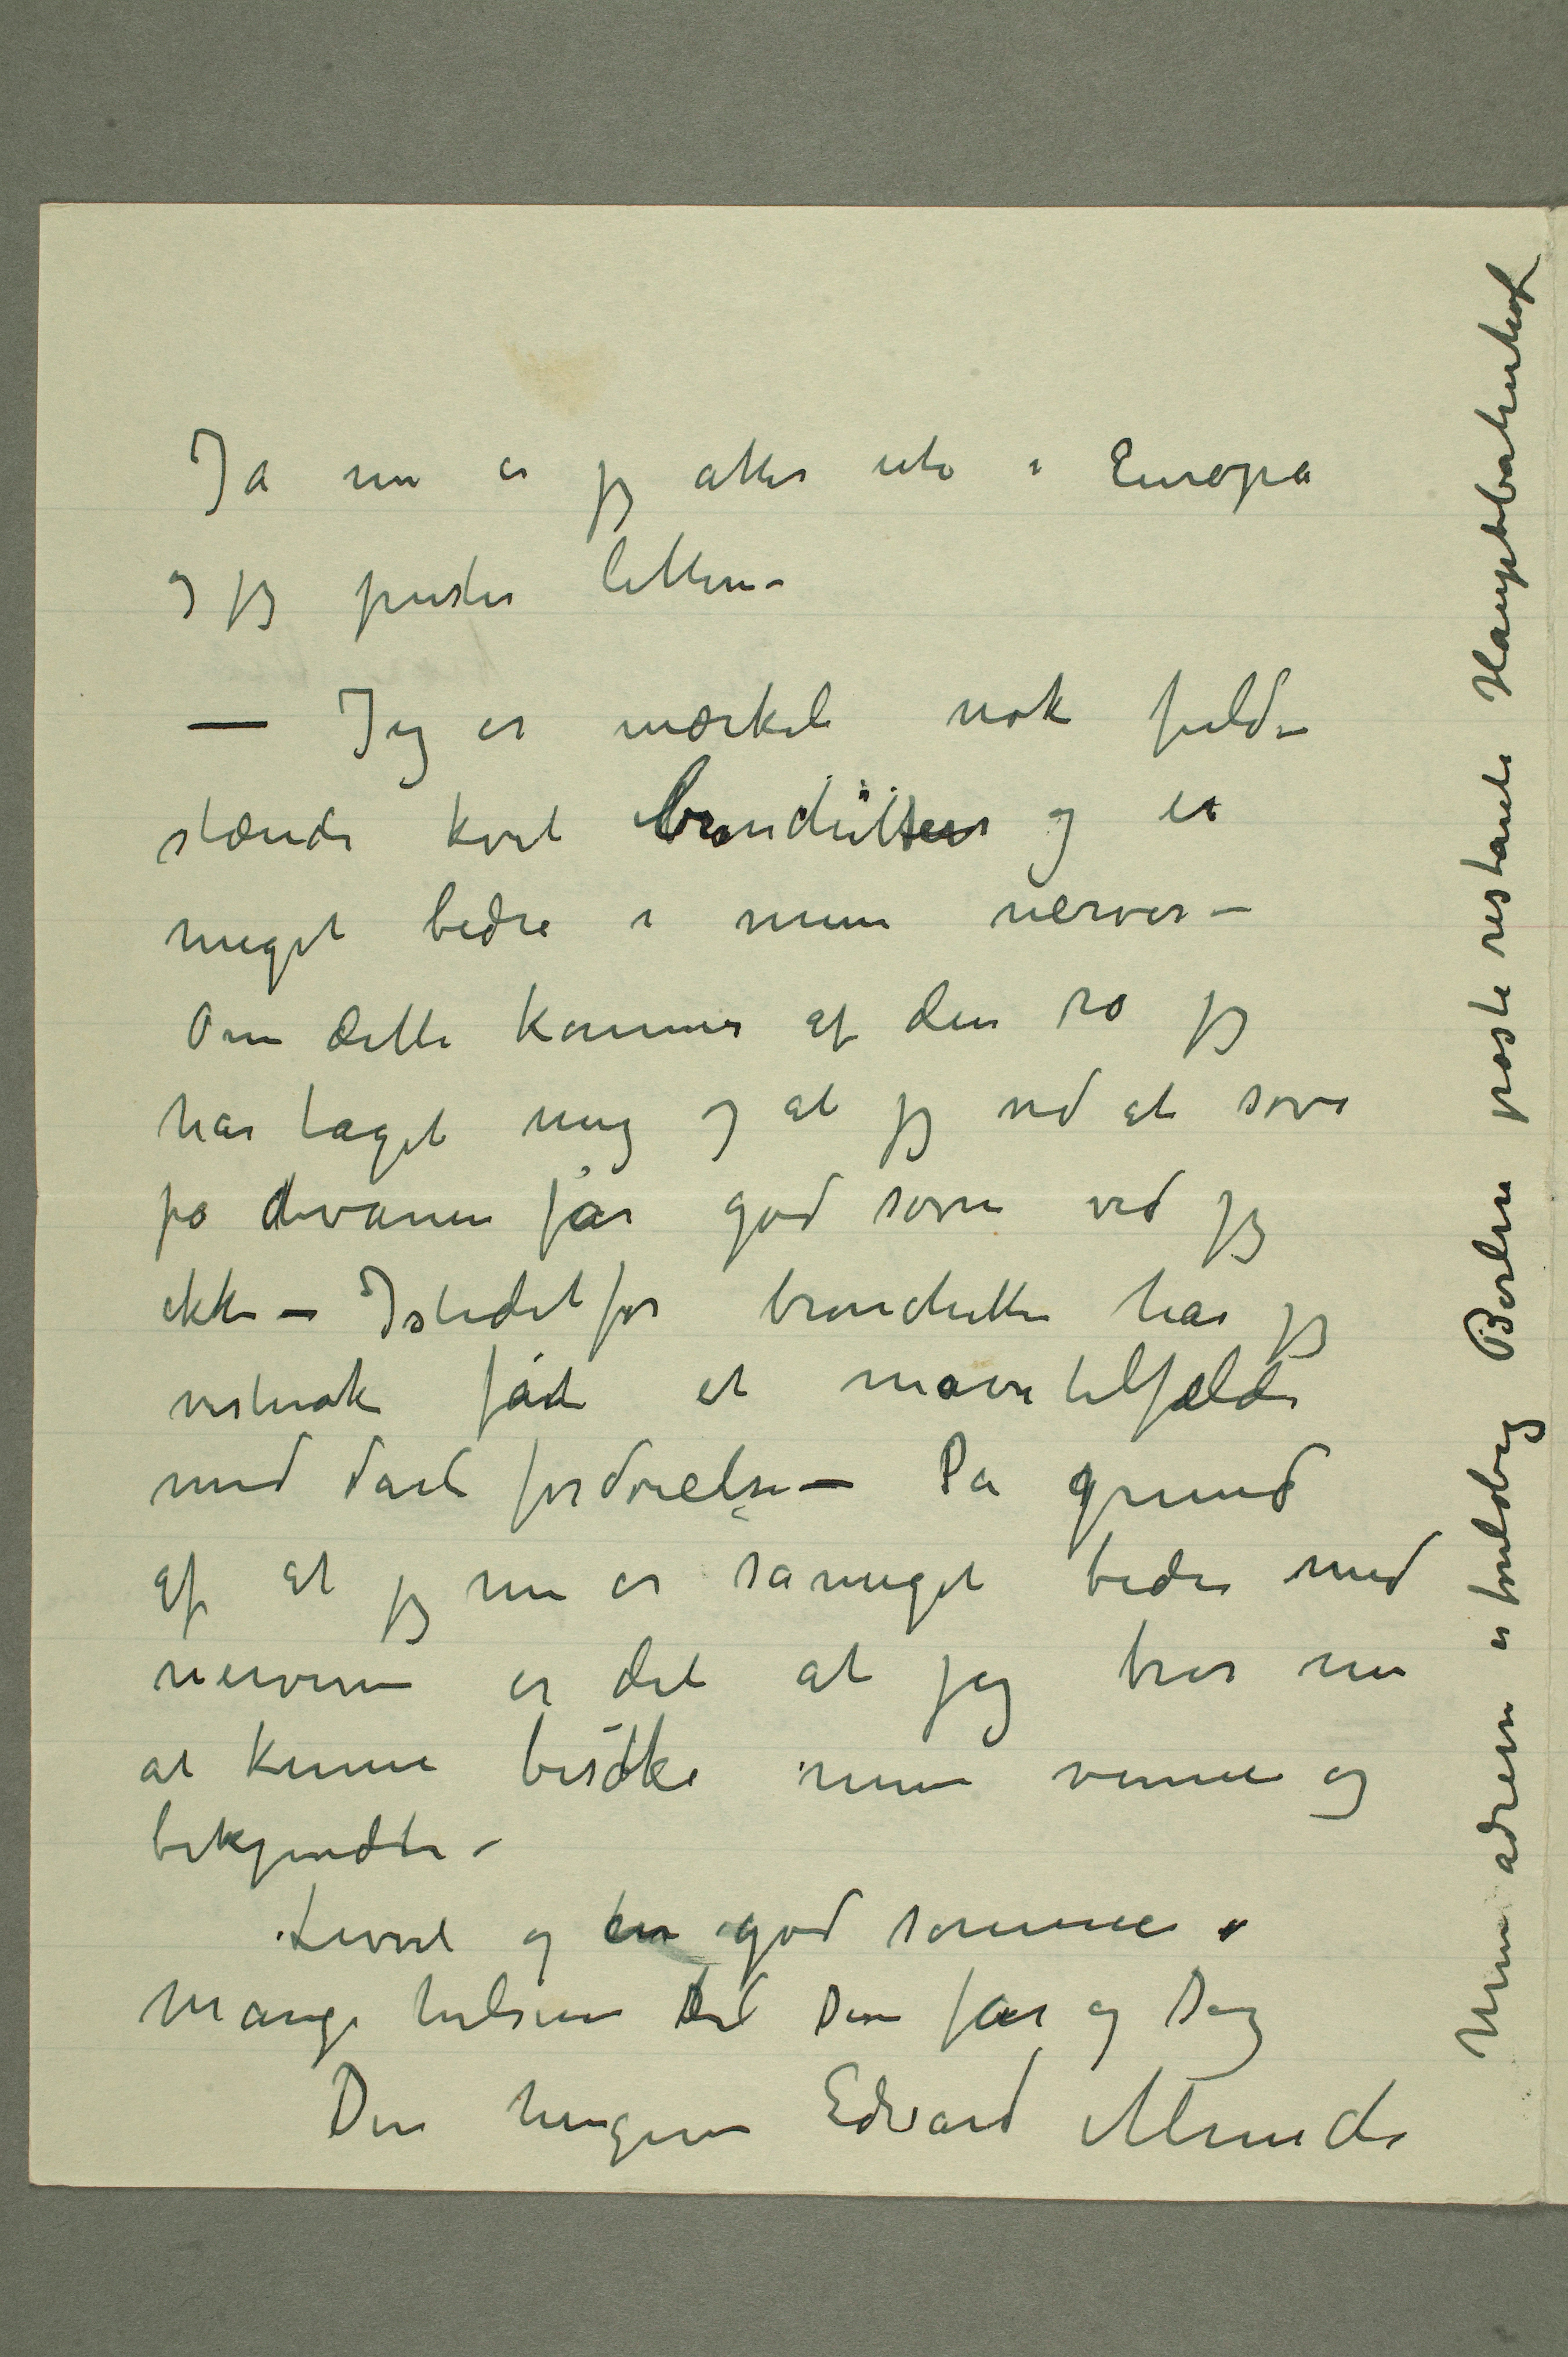 Ja nu er jeg atter ute i Europa
og jeg puster lettere –
— Jeg er mærkelig nok fuld-
stændi kvit bronchitten og er
meget bedre i mine nerver –
Om dette kommer af den ro jeg
har taget mig og at jeg ved at sove
på divanen får god søvn ved jeg
ikke – Istedetfor bronchitten har jeg
vistnok fåt et mavetilfælde
med dårli fordøielse – På grund
af at jeg nu er såmeget bedre med
nerverne er det at jeg tror nu
at kunne besøke mine venner og
bekjendte –
Levvel og en god sommer
Mange hilsener til Din far og Dig
Din hengivne Edvard Munch
Min adresse er foreløbig Berlin poste restante Hauptbahnhof